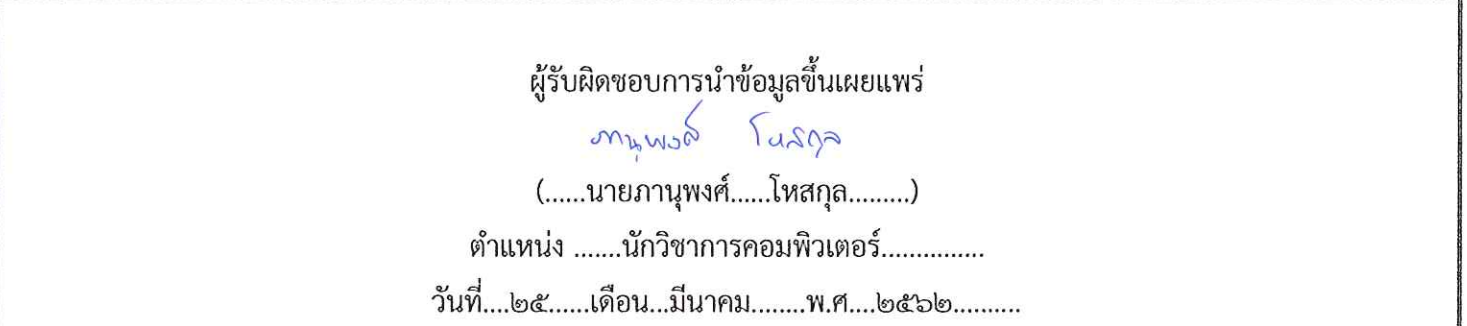 ผู้รับผิดชอบการนำข้อมูลขึ้นเผยแพร่
ภานุพงศ์ โหสกุล
(......นายภานุพงศ์......โหสกุล.........)
ตำแหน่ง .......นักวิชาการคอมพิวเตอร์...............
วันที่....๒๕......เดือน...มีนาคม........พ.ศ....๒๕๖๒..........